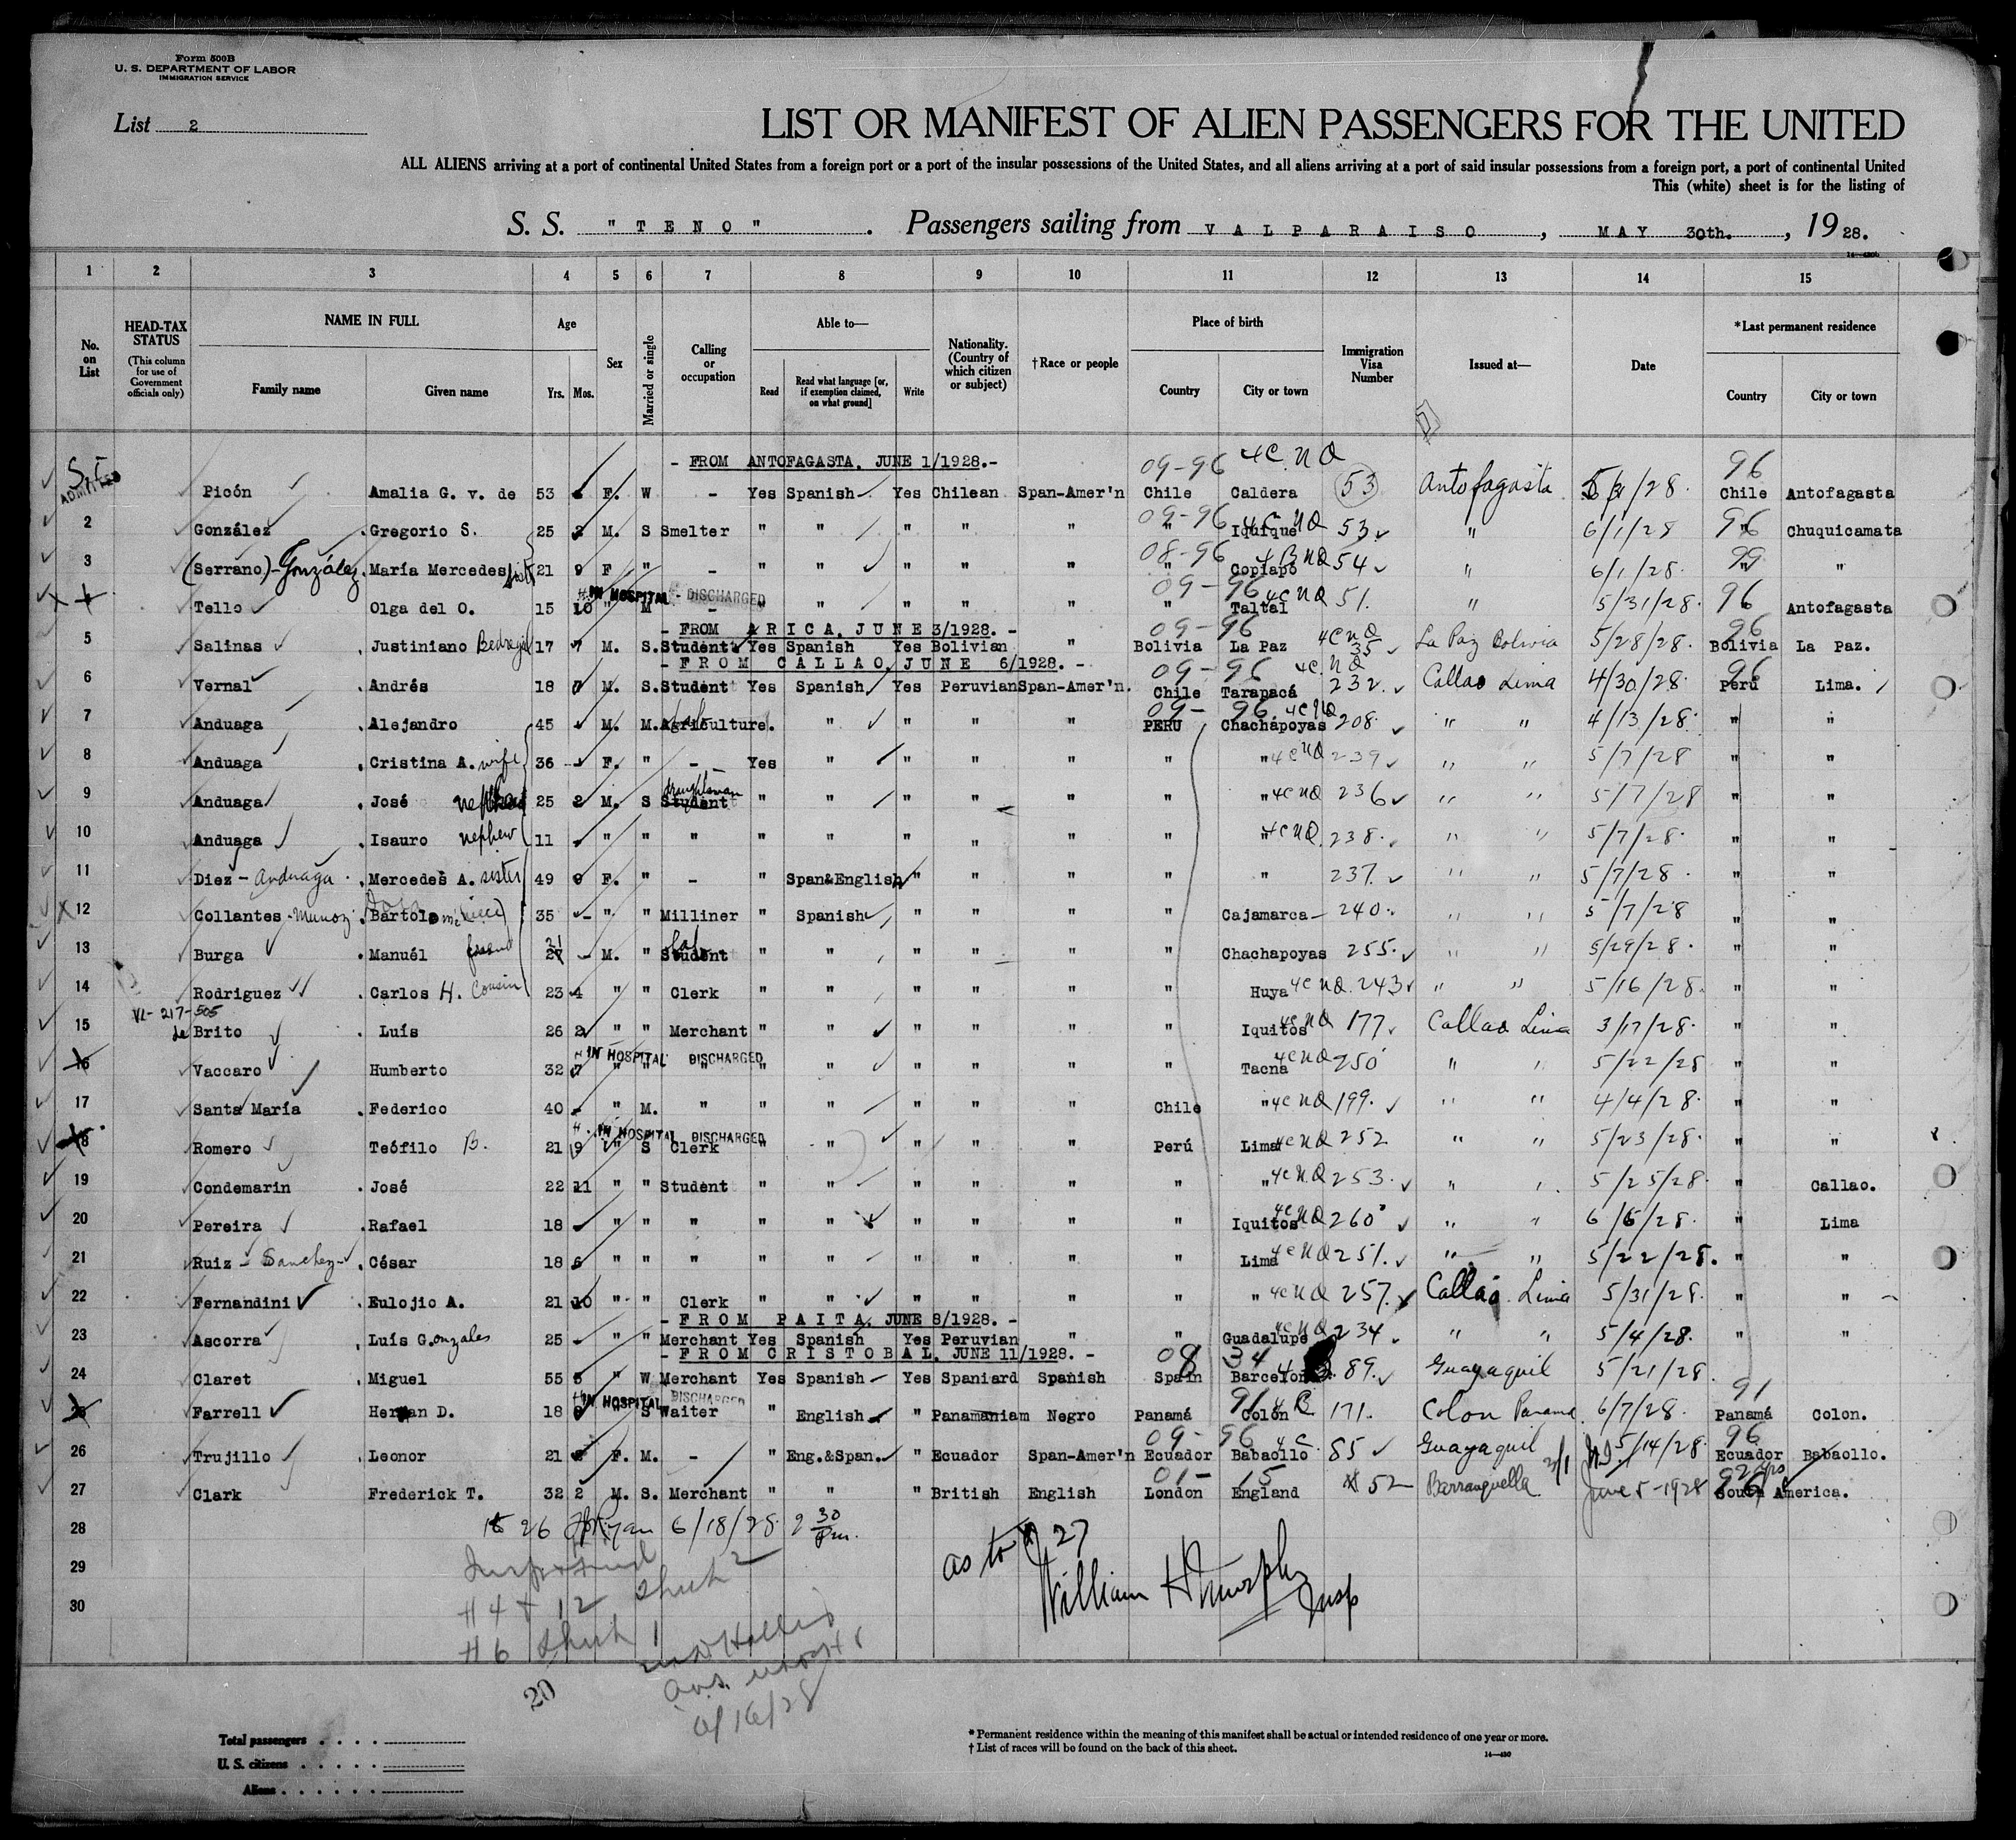 Form 500B
U. S. DEPARTMENT OF LABOR
IMMIGRATION SERVICE
List 2
LIST OR MANIFEST OF ALIEN PASSENGERS FOR THE UNITED
ALL ALIENS arriving at a port of continental United States from a foreign port or a port of the insular possessions of the United States, and all aliens arriving at a port of said insular possessions from a foreign port, a port of continental United
This (white) sheet is for the listing of
S. S. "TENO". Passengers sailing from VALPARAISO, MAY 30th., 1928.
1 2 3 4 5 6 7 8 9 10 11 12 13 14 15
No. on List
HEAD-TAX STATUS (This column for use of Government officials only)
NAME IN FULL Family name Given name
Age Yrs. Mos.
Sex
Married or single
Calling or occupation
Able to— Read Read what language [or, if exemption claimed, on what ground] Write
Nationality. (Country of which citizen or subject)
†Race or people
Place of birth Country City or town
Immigration Visa Number
Issued at—
Date
*Last permanent residence Country City or town
- FROM ANTOFAGASTA. JUNE 1/1928.- 09-96 4C NQ 96
S.I. ADMITTED Picón Amalia G. v. de 53 F. W - Yes Spanish Yes Chilean Span-Amer'n Chile Caldera 53 Antofagasta /28. Chile Antofagasta
2 González Gregorio S. 25 2 M. S Smelter " " " " " 09-96 " Iquique 4C NQ 53 " 6/1/28 96 " Chuquicamata
3 (Serrano)-González María Mercedes 21 9 F " - " " " " " 08-96 " Copiapó 4B NQ 54 " 6/1/28. 99 " "
4 Tello Olga del O. 15 10 " M IN HOSPITAL DISCHARGED - " " " " " 09-96 " Taltal 4C NQ 51. " 5/31/28. 96 Antofagasta
- FROM ARICA. JUNE 3/1928. - 09-96 96
5 Salinas Justiniano 17 7 M. S. Student Yes Spanish Yes Bolivian " Bolivia La Paz 4C NQ 35 La Paz Bolivia 5/28/28. Bolivia La Paz.
- FROM CALLAO, JUNE 6/1928. - 09-96 4C NQ 96
6 Vernal Andrés 18 7 M. S. Student Yes Spanish Yes Peruvian Span-Amer'n. Chile Tarapacá 232. Callao Lima 4/30/28. Perú Lima.
7 Anduaga Alejandro 45 - M. M. Agriculture. " " " " 09-96 PERU Chachapoyas 4C NQ 208. " " 4/13/28. " "
8 Anduaga Cristina A. wife 36 - F. " - Yes " " " " " " 4C NQ 239 " " 5/7/28 " "
9 Anduaga José nephew 25 2 M. S draughtsman Student " " " " " " " 4C NQ 236 " " 5/7/28 " "
10 Anduaga Isauro nephew 11 - " " " " " " " " " " 4C NQ 238. " " 5/7/28. " "
11 Diez-Anduaga Mercedes A. sister 49 9 F. " - " Span&English " " " " " 237. " " 5/7/28. " "
12 Collantes-Munoz niece 35 - " " Milliner " Spanish " " " " Cajamarca 240. " " 5/7/28 " "
13 Burga Manuél friend 21 - M. " Student " " " " " " Chachapoyas 255. " " 5/29/28. " "
14 Rodriguez Carlos H. Cousin 23 4 " " Clerk " " " " " " Huya 4C NQ 243 " " 5/16/28. " "
VL-217-505
15 de Brito Luís 26 2 " " Merchant " " " " " " Iquitos 4C NQ 177. Callao Lima 3/17/28. " "
16 Vaccaro Humberto 32 7 " " IN HOSPITAL DISCHARGED " " " " " " " Tacna 4C NQ 250 " " 5/22/28 " "
17 Santa María Federico 40 - " M. " " " " " " Chile " 4C NQ 199. " " 4/4/28. " "
18 Romero Teófilo B. 21 9 " S IN HOSPITAL DISCHARGED Clerk " " " " " Perú Lima 4C NQ 252 " " 5/23/28. " "
19 Condemarin José 22 11 " " Student " " " " " " " 4C NQ 253. " " 5/25/28. " Callao.
20 Pereira Rafael 18 - " " " " " " " " " Iquitos 4C NQ 260 " " 6/6/28. " Lima
21 Ruiz-Sanchez César 18 6 " " " " " " " " " Lima 4C NQ 251. " " 5/22/28. " "
22 Fernandini Eulojio A. 21 10 " " Clerk " " " " " " " 4C NQ 257. Callao Lima 5/31/28. " "
- FROM PAITA. JUNE 8/1928. -
23 Ascorra Luís Gonzales 25 - " " Merchant Yes Spanish Yes Peruvian " " Guadalupe 4C NQ 234 " " 5/4/28. " "
- FROM CRISTOBAL. JUNE 11/1928. - 08 34
24 Claret Miguel 55 5 " W Merchant Yes Spanish Yes Spaniard Spanish Spain Barcelona 89. Guayaquil 5/21/28.
25 Farrell Herman D. 18 " S IN HOSPITAL DISCHARGED Waiter " English " Panamaniam Negro Panamá 91 Colón 171. Colon Panama 6/7/28. 91 Panamá Colon.
26 Trujillo Leonor 21 F. M. - " Eng.&Span. " Ecuador Span-Amer'n 09-96 Ecuador Babaollo 4C. 85 Guayaquil 5/14/28. 96 Ecuador Babaollo.
27 Clark Frederick T. 32 2 M. S. Merchant " " " British English 01-15 London England 52 Barranquella June 5-1928 South America.
28 26 Ryan 6/18/28. 9 30 pm.
29 as to # 27
30 William H Murphy Insp
# 4 + 12 Sheet 2
# 6 Sheet 1
6/16/28
20
Total passengers
U. S. citizens
Aliens
* Permanent residence within the meaning of this manifest shall be actual or intended residence of one year or more.
† List of races will be found on the back of this sheet.
14—430